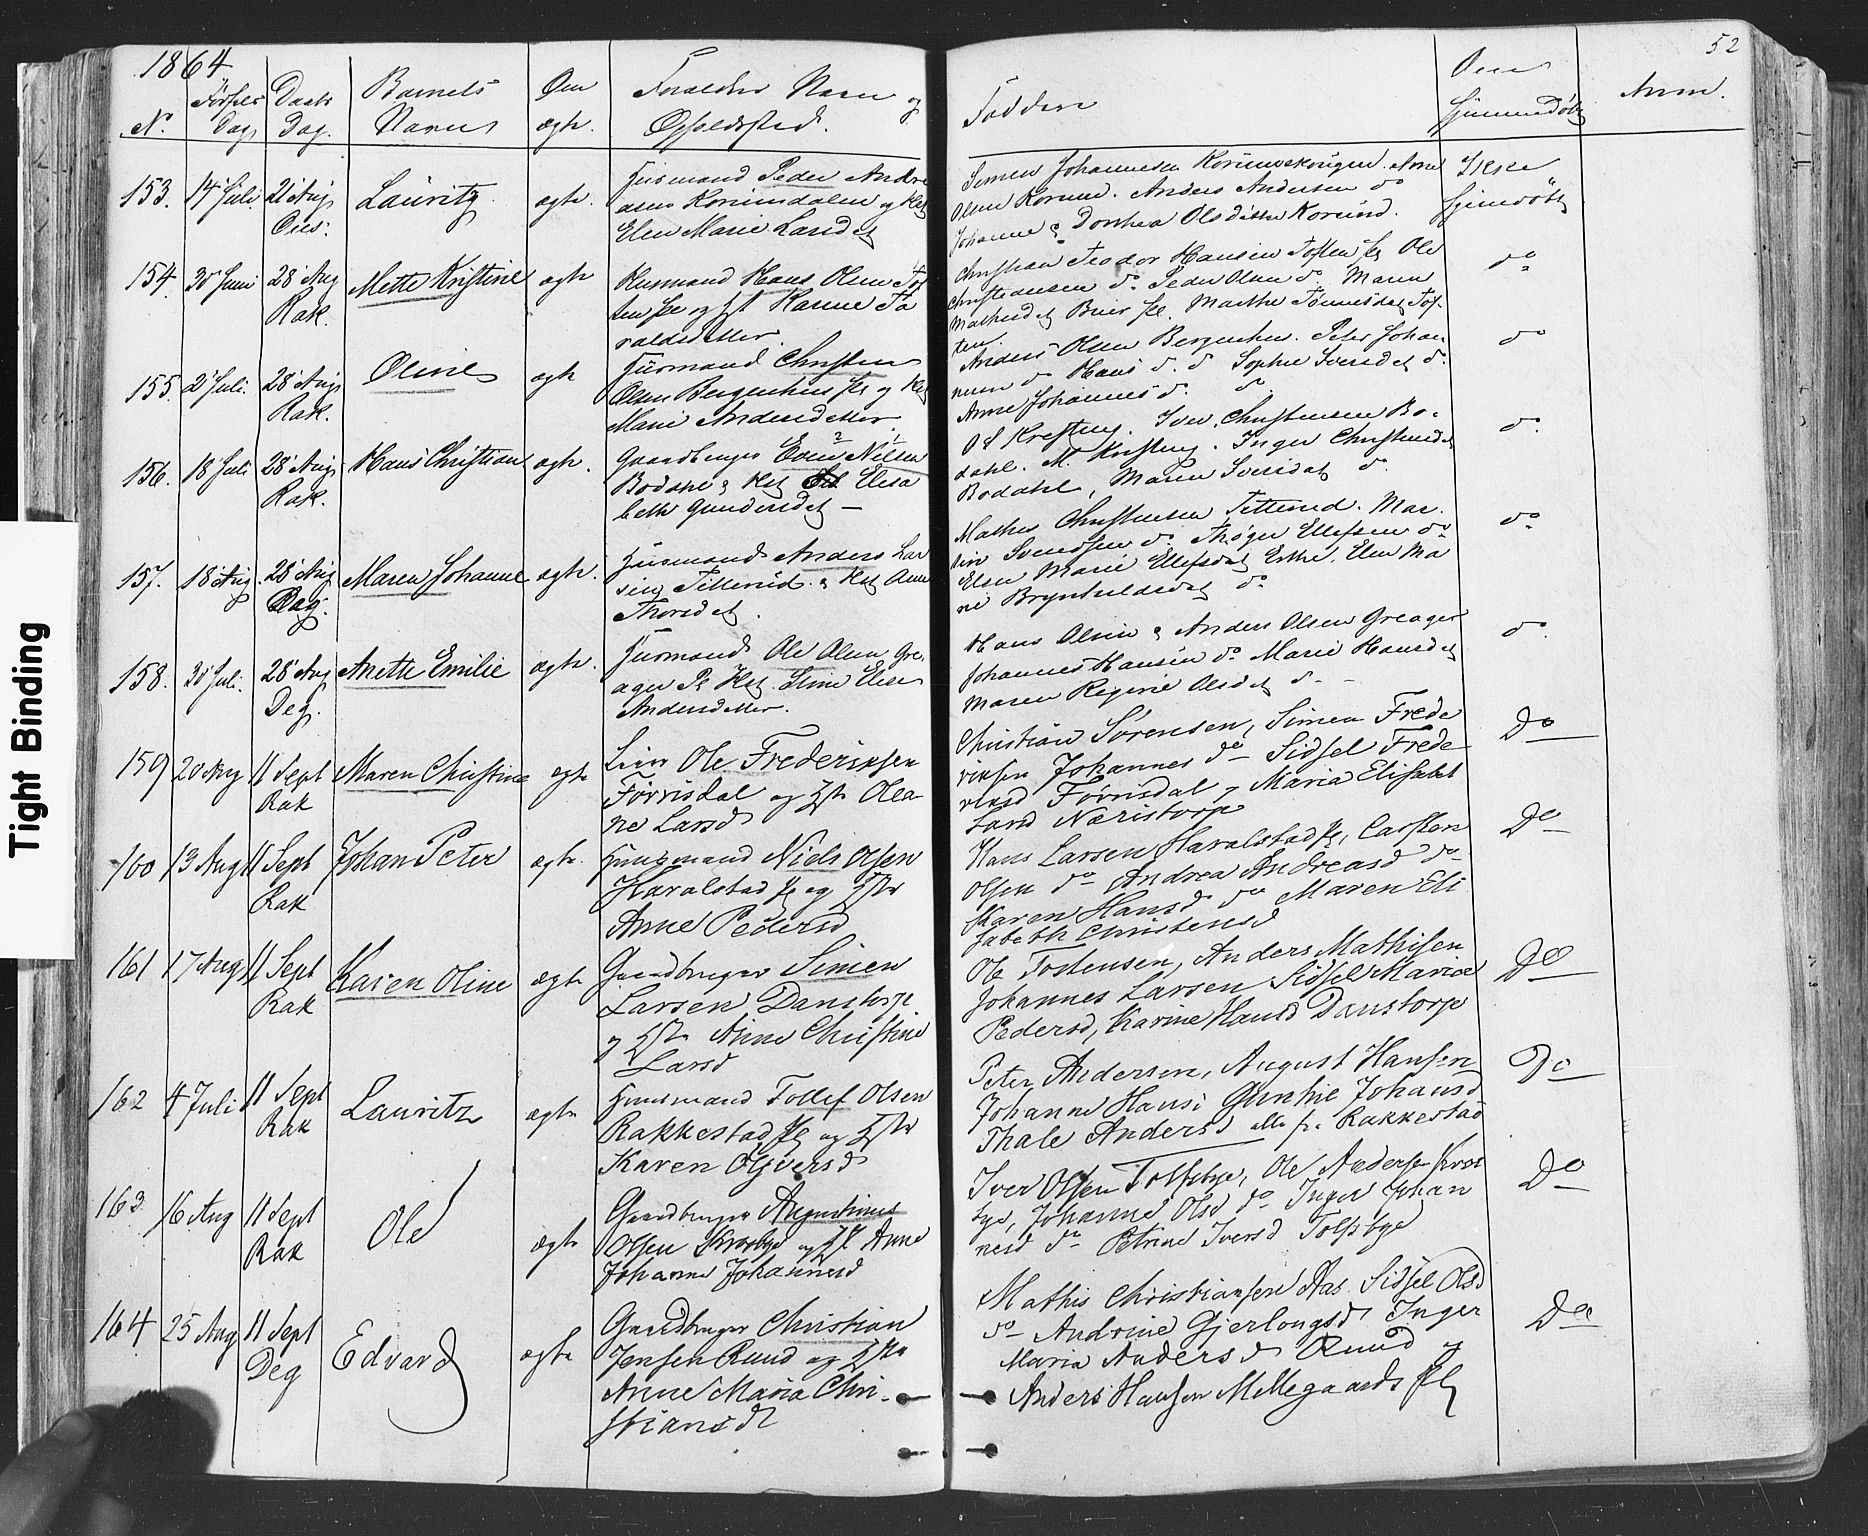 1864
52
N.
Fødsels Dag
Daabs Dag.
Barnets Navn
Om ægte.
Forældres Navn og Opholdssted.
Faddere
Om Hjemmedøbt
Anm.
153. 14 Juli 21 Aug Lauritz ægte. Huusmand Peder Andre
asen Korsundalen og Hst
Elen Marie Larsdet
Simen Johannesen Arne
Olsen Korsund. Anders Andersen do
Johanne & Dorthea Olsdatter Korsund.
Ikke
hjemdøbt
154. 30 Juni 28 Aug Rak. Mette Kristine ægte Husmand Hans Olsen Tof
ten Pl og Hst Karine Ta
raldsdatter.
Christian Teodor Hansen Toften Pl Ole
Christiansen do Peder Olsen do Maren
Mathisdet Pl. Marthe Tønnesdet Tof-
ten.
do
155. 2 Juli. 28 Aug Rak. Oline ægte Husmand Christen
Olsen Bergenhus Pl og Hst
Marie Andersdatter.
Anders Olsen Bergenhus. Peter Johan
nesen do Hans do. do Sophie Iversdet do.
Anne Johannesd do.
do
156. 18 Juli 28 Aug Rak. Hans Christian ægte. Gaardbruger Even Nilsen
Bodahl & Hst Elisa
beth Gundersdet —
Iver Christensen Bo-
dahl. Inger Christensdet
Bodahl, Maren Iversdet do.
do
157. 18 Aug 28 Aug Rag. Maren Johanne ægte. Husmand Anders Lar
sen Titterud. & Hst Anne
Thorsdet.
Mathis Christensen Titterud. Mar-
tin Svendsen do. Thøger Ellefsen do
Elen Marie Ellefsdet Elen Ma
rie Brynhildsdet do
do
158. 30 Juli. 28 Aug Deg. Anette Emilie ægte. Husmand Ole Olsen Gre
ager Pl Hst. Stine Elise
Andersdatter.
Hans Olsen & Anders Olsen Greager
Johannes Hansen do Marie Hansdet
Maren Regine Olsdet do -
do
159 20 Aug 11 Sept Rak Maren Christine ægte Ole Frederiksen
Førrisdal og Hst Olea-
ne Larsd
Christian Sørensen, Simen Frede
riksen Johannes do Sidsel Frede-
riksd Førrisdal, Maria Elisabet
Larsd Næristorp
Do
160 13 Aug 11 Sept Rak Johan Peter ægte. Huusmand Niels Olsen
Haralstad Pl og Hstr
Anne Pedersd
Hans Larsen Haralstad Pl, Carsten
Olsen do Andrea Andreasd do
Karen Hansd do Maren Eli
sabeth Christensd
Do
161 17 Aug 11 Sept Rak Karen Oline ægte Gaardbruger Simen
Larsen Danstorp
og Hstr Anne Christine
Larsd
Ole Tostensen, Anders Mathisen
Johannes Larsen Sidsel Maria
Pedersd, Karine Hansd Danstorp
Do
162 4 Juli 11 Sept Rak Lauritz ægte Huusmand Tollef Olsen
Rakkestad Pl og Hstr
Karen Oliversd
Peter Andersen, August Hansen
Johanne Hansd Gunhie Johansd
Thale Andersd alle fra Rakkestad
Do
163 16 Aug 11 Sept Rak Ole ægte Gaardbruger Augustinus
Olsen Krosby og Hst Anne
Johanne Johannesd
Iver Olsen Tolfsbye, Ole Andersen Kros
bye, Johanne Olsd do Inger Johan
nesd do Petrine Iversd Tolfsbye
Do
164 25 Aug 11 Sept Deg Edvard ægte Gaardbruger Christian
Jensen Ruud og Hstr
Anne Maria Chri-
stiansdt
Mathis Christiansen Aas Sidsel Olsd
do Andrine Gjerlougsd Inger
Maria Andersd Ruud og
Anders Hansen Mellegaard Pl
Do
Tight Binding